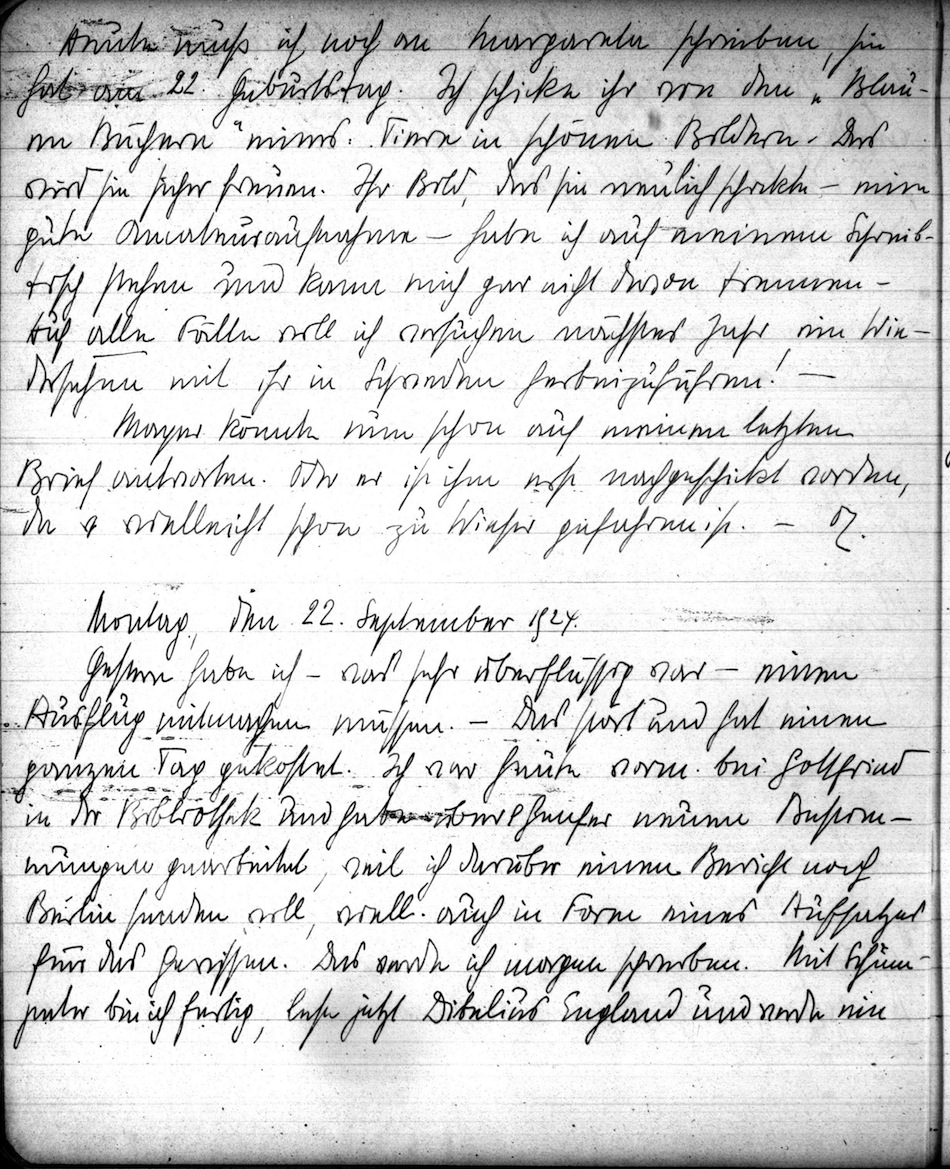 Heute muß ich noch an Margareta schreiben, sie
hat am 22. Geburtstag. Ich schicke ihr von den „Blau-
en Büchern" eines: Tiere in schönen Bildern. Das
wird sie sicher freuen. Ihr Bild, das sie neulich schickte – eine
gute Amateuraufnahme – habe ich auf meinem Schreib-
tisch stehen und kann mich gar nicht davon trennen –
Auf alle Fälle will ich versuchen nächstes Jahr ein Wie-
dersehen mit ihr in Schweden herbeizuführen! –
Mayer könnte nun schon auf meinen letzten
Brief antworten. Oder er ist ihm erst nachgeschickt worden,
da er vielleicht schon zu Wieser gefahren ist. –
Montag, den 22. September 1924.
Gestern habe ich – was sehr überflüssig war – einen
Ausflug mitmachen müssen. – Das stört und hat einen
ganzen Tag gekostet. Ich war heute vorm. bei Gottfried
in der Bibliothek und habe über neuen Bestim-
mungen gearbeitet, weil ich darüber einen Bericht nach
Berlin senden will, viell. auch in Form eines Aufsatzes
für das Gewissen. Das werde ich morgen schreiben. Mit Schum-
peter bin ich fertig, lese jetzt Dibelius England und werde ein